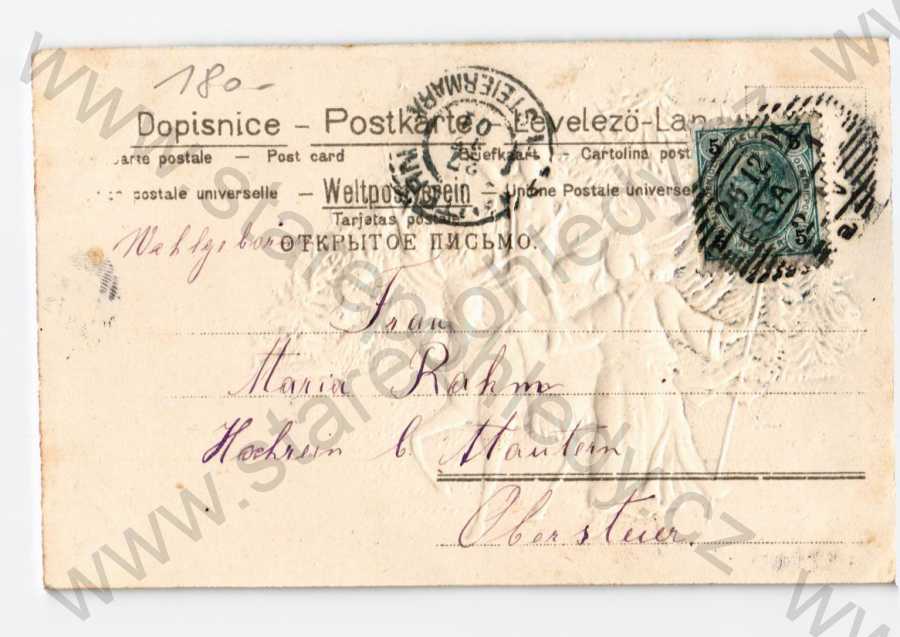 180-
Dopisnice - Postkarte - Levelezö-Lap
arte postale - Post card Briefkaart - Cartolina post
postale universelle Weltpostverein - Unione Postale universe
Tarjetas postale
Wohlgeboren
ОТКРЫТОЕ ПИСЬМО.
STEIERMARK
5 5
26 12
5
Frau
Maria Rahm
Hochrein b. Mautern
Obersteier.
www.starepohledy.cz